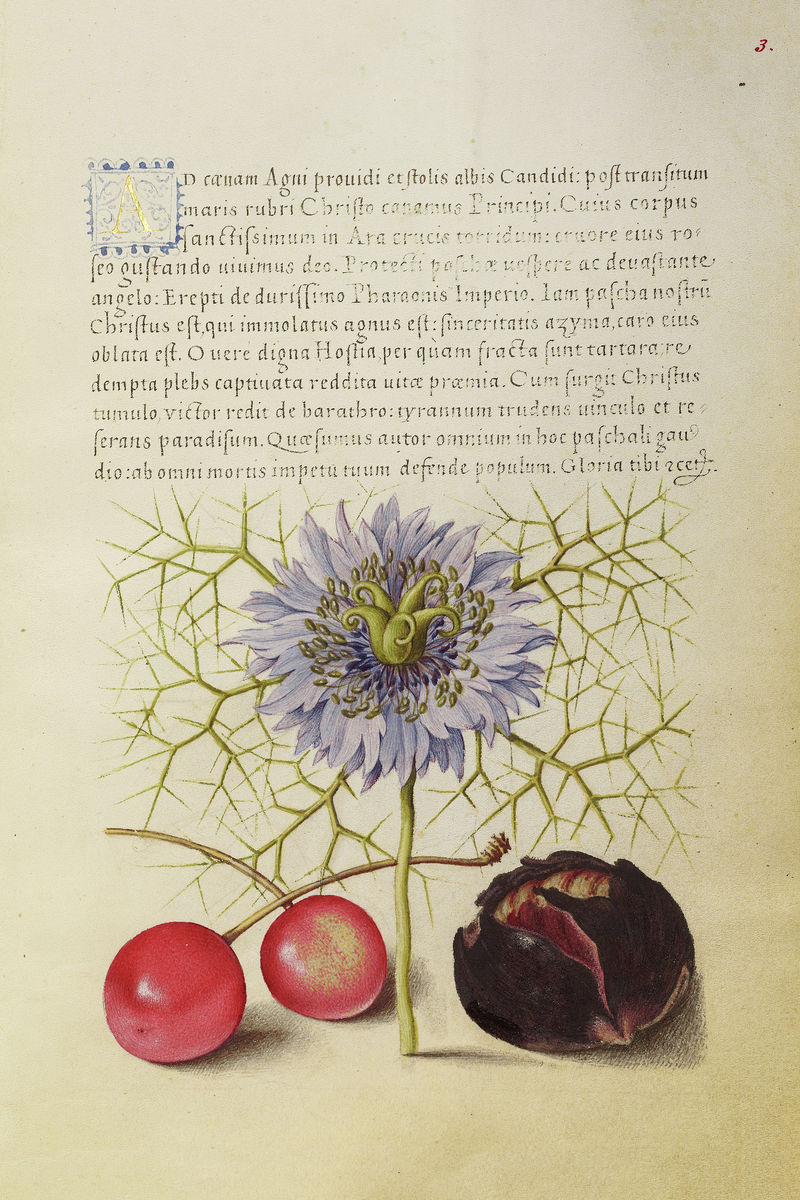 3.
AD cœnam Agni prouidi et ſtolis albis Candidi: poſt tranſitum
maris rubri Chriſto canamus Principi. Cuius corpus
ſanctiſsimum in Ara crucis torridum: cruore eius ro-
ſeo guſtando uiuimus deo. Protecti paſchæ ueſpere ac deuaſtante
angelo: Erepti de duriſſimo Pharaonis Imperio. Iam paſcha noſtrū
Chriſtus eſt, qui immolatus agnus eſt: ſinceritatis azyma, caro eius
oblata eſt. O uere digna Hoſtia, per quam fracta ſunt tartara: re
dempta plebs captiuata reddita uitæ præmia. Cum ſurgit Chriſtus
tumulo, victor redit de barathro: tyrannum trudens uinculo et re-
ſerans paradiſum. Quæſumus autor omnium in hoc paſchali gau
dio: ab omni mortis impetu tuum defende populum. Gloria tibi &cet.